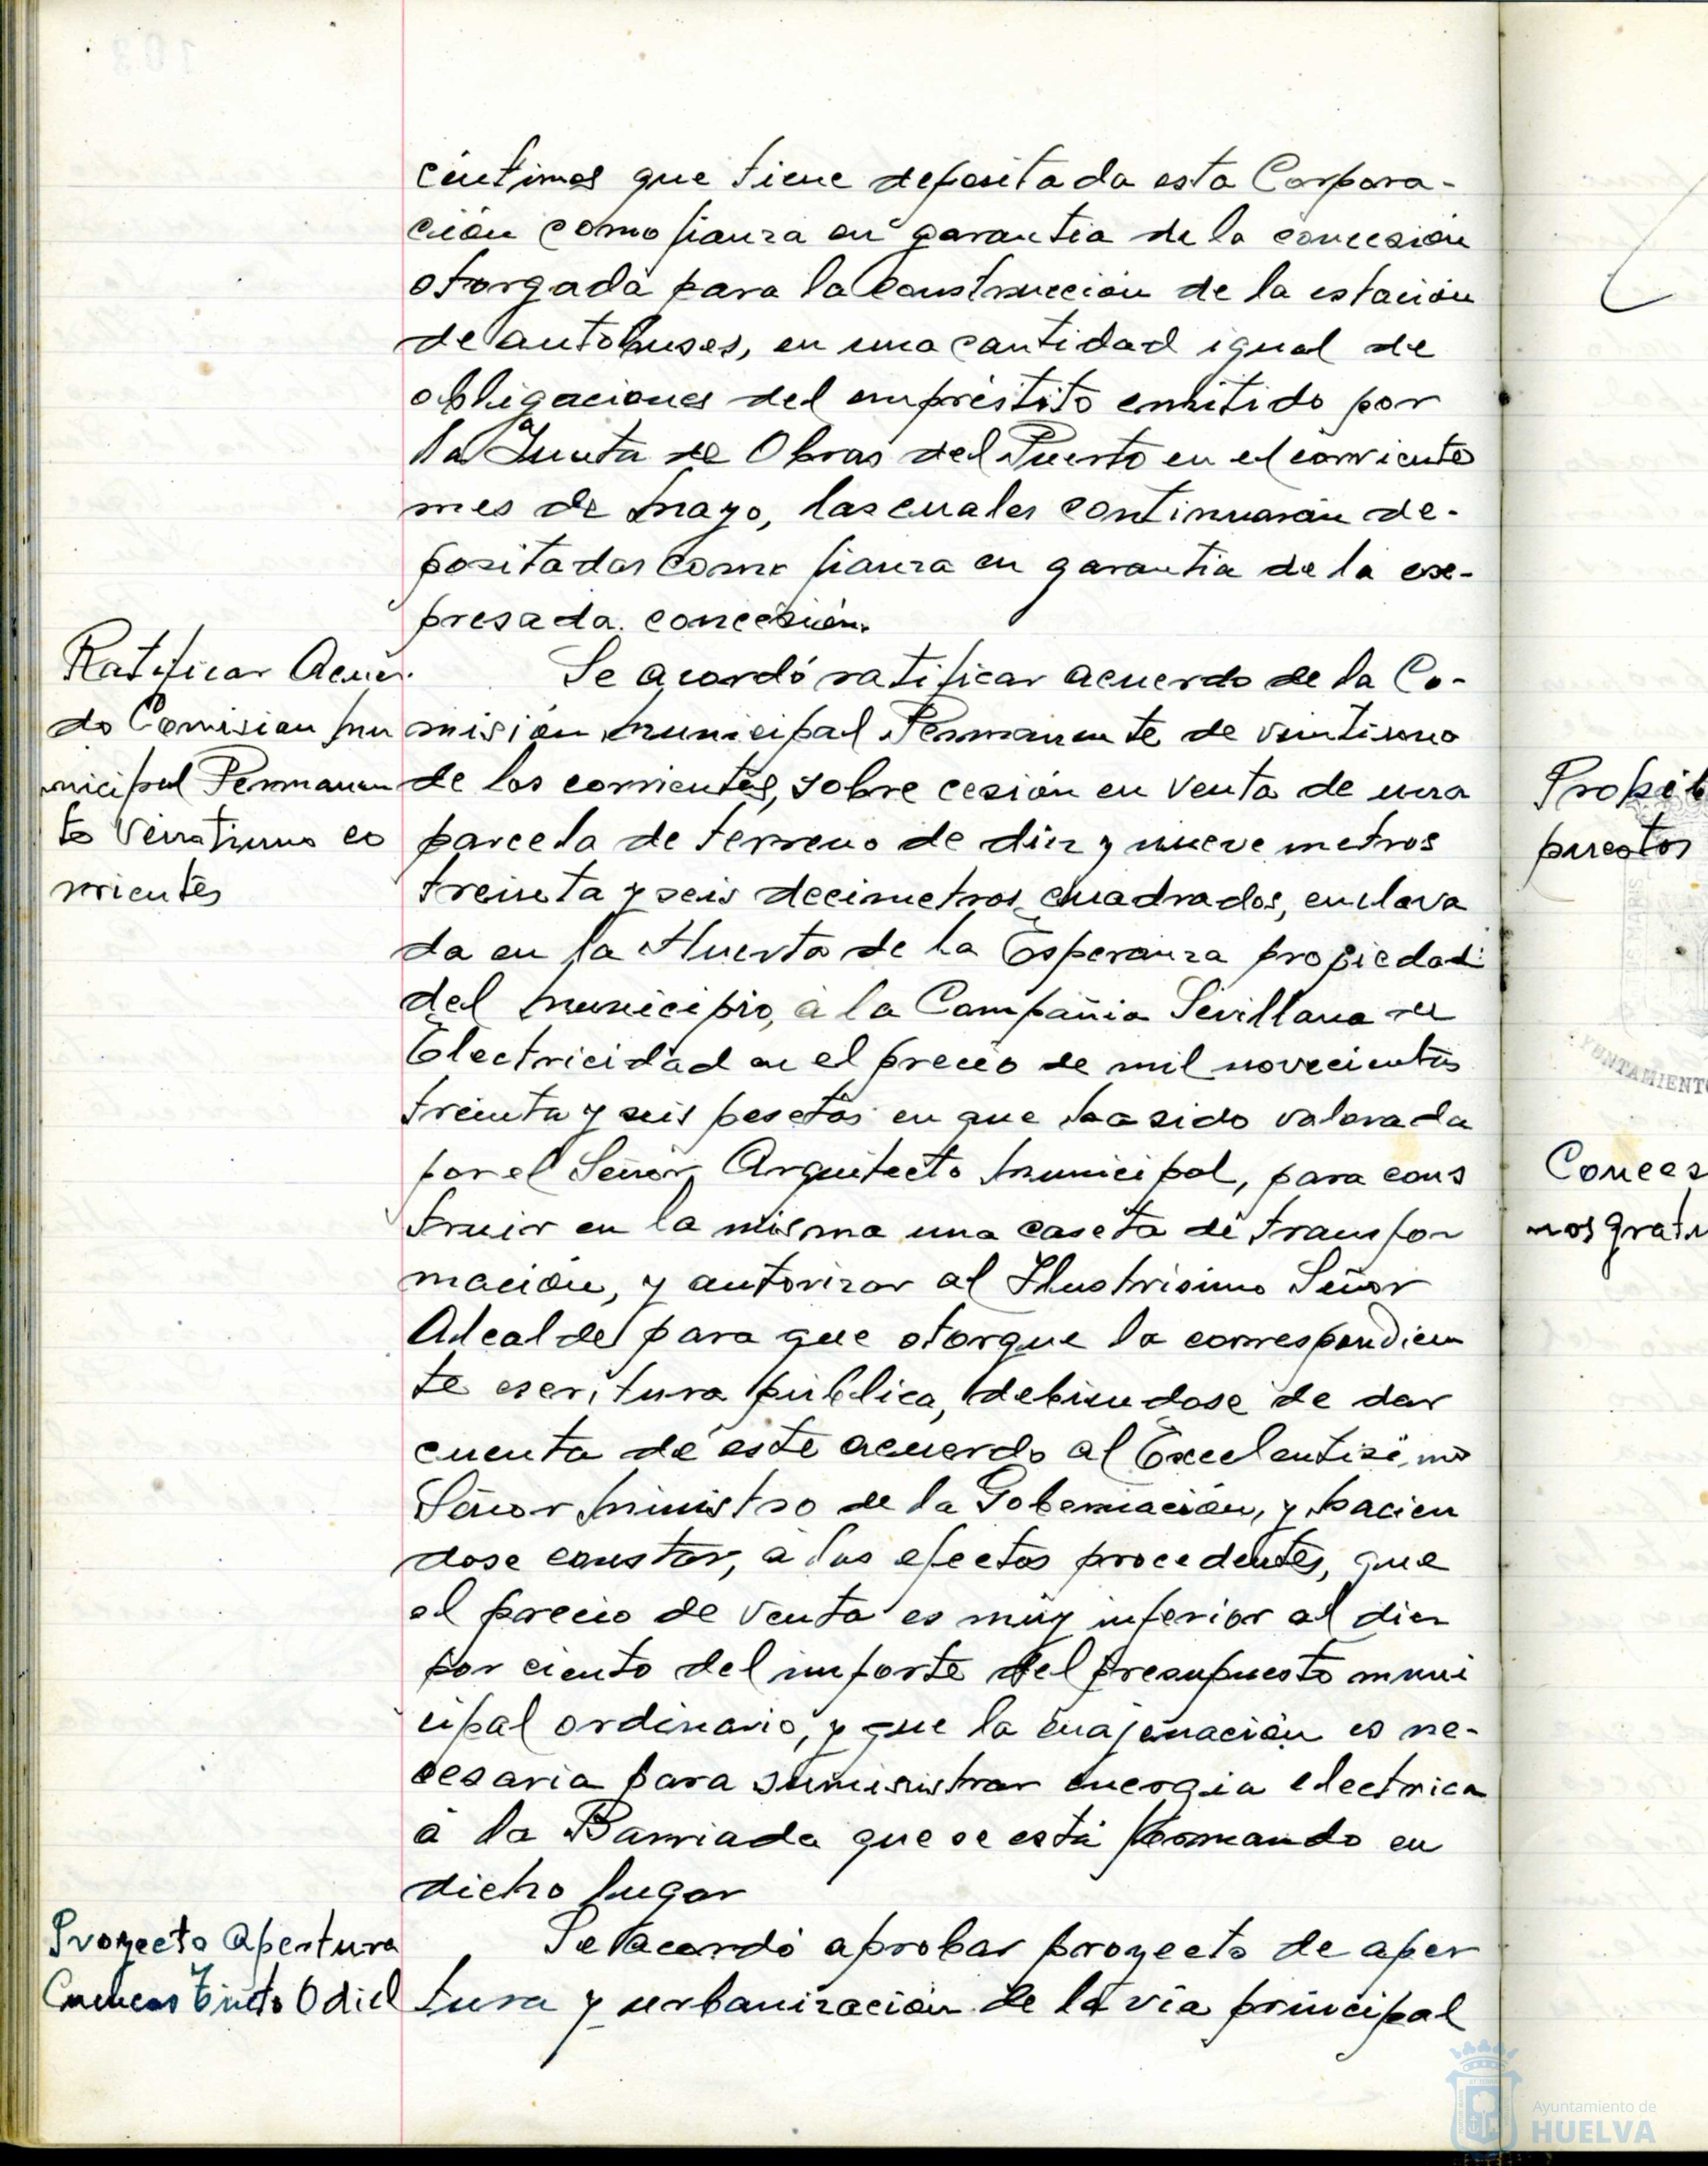 céntimos que tiene depositada esta Corpora-
ción como fianza en garantia de la concesión
otorgada para la construcción de la estación
de autobuses, en una cantidad igual de
obligaciones del empréstito emitido por
la Junta de Obras del Puerto en el corriente
mes de mayo, las cuales continuarán de-
positadas como fianza en garantia de la ex-
presada concesión.
Ratificar Acuer-
do Comision mu
nicipal Permanen
te veintiuno co
rrientes
Se acordó ratificar acuerdo de la Co-
misión municipal Permanente de veintiuno
de los corrientes, sobre cesión en venta de una
parcela de terreno de diez y nueve metros
treinta y seis decimetros cuadrados, enclava
da en la Huerta de la Esperanza propiedad
del municipio, a la Compañia Sevillana de
Electricidad en el precio de mil novecientas
treinta y seis pesetas en que ha sido valorada
por el Señor Arquitecto municipal, para cons
truir en la misma una caseta de transfor
mación, y autorizar al Ilustrisimo Señor
Alcalde para que otorgue la correspondien
te escritura pública, debiendose de dar
cuenta de este acuerdo al Excelentisimo
Señor Ministro de la Gobernación, y hacien
dose constar, a los efectos procedentes, que
el precio de venta es muy inferior al diez
por ciento del importe del presupuesto muni
cipal ordinario, y que la enajenación es ne-
cesaria para suministrar energia electrica
a la Barriada que se está formando en
dicho lugar
Proyecto apertura
Cuencas Tinto Odiel
Se acordó aprobar proyecto de aper
tura y urbanización de la via principal
puestos
Conces
nos gratu
Ayuntamiento de
HUELVA